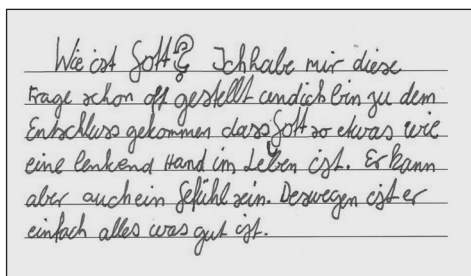 Wie ist Gott? Ich habe mir diese
Frage schon oft gestellt und ich bin zu dem
Entschluss gekommen dass Gott so etwas wie
eine lenkend Hand im Leben ist. Er kann
aber auch ein Gefühl sein. Deswegen ist er
einfach alles was gut ist.